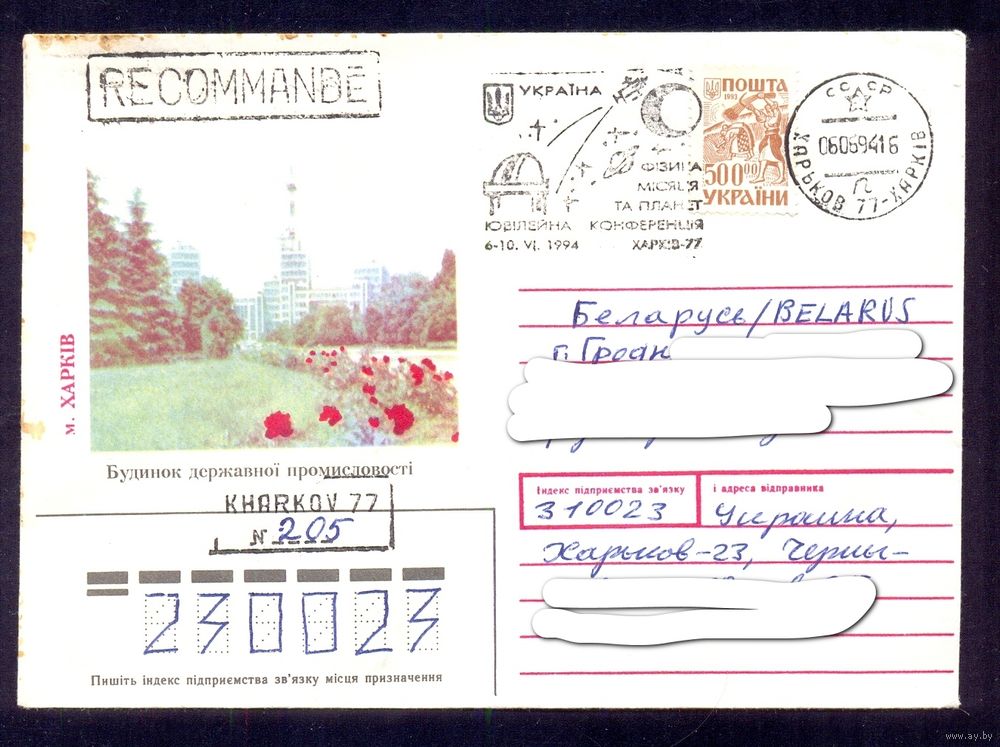 RECOMMANDE
УКРАЇНА
ФІЗИКА
МІСЯЦЯ
ТА ПЛАНЕТ
ЮВІЛЕЙНА КОНФЕРЕНЦІЯ
6-10. VI. 1994 ХАРКІВ-77
ПОШТА
1993
500 00
УКРАЇНИ
СССР
06069416
ХАРЬКОВ 77-ХАРКІВ
м. ХАРКІВ
Будинок державної промисловості
KHARKOV 77
N 205
Беларусь/BELARUS
г. Гродн
Індекс підприємства зв'язку і адреса відправника
310023 Украина,
Харьков-23, Черны-
230023
Пишіть індекс підприємства зв'язку місця призначення
www.ay.by